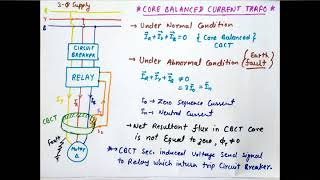 3-Φ Supply
R
Y
B
CIRCUIT
BREAKER
RELAY
CBCT
Fault
MOTOR
* CORE BALANCED CURRENT TRAFO *
→ Under Normal Condition
I̅R + I̅Y + I̅B = 0 { Core Balanced }
CBCT
→ Under Abnormal Condition ( Earth
fault )
I̅R + I̅Y + I̅B ≠ 0
= 3I̅o = I̅n
Io → Zero Sequence Current
In → Neutral Current
→ Net Resultant flux in CBCT Core
is not Equal to zero, Φr ≠ 0
* CBCT Sec. induced Voltage Send Signal
to Relay which inturn trip Circuit Breaker.